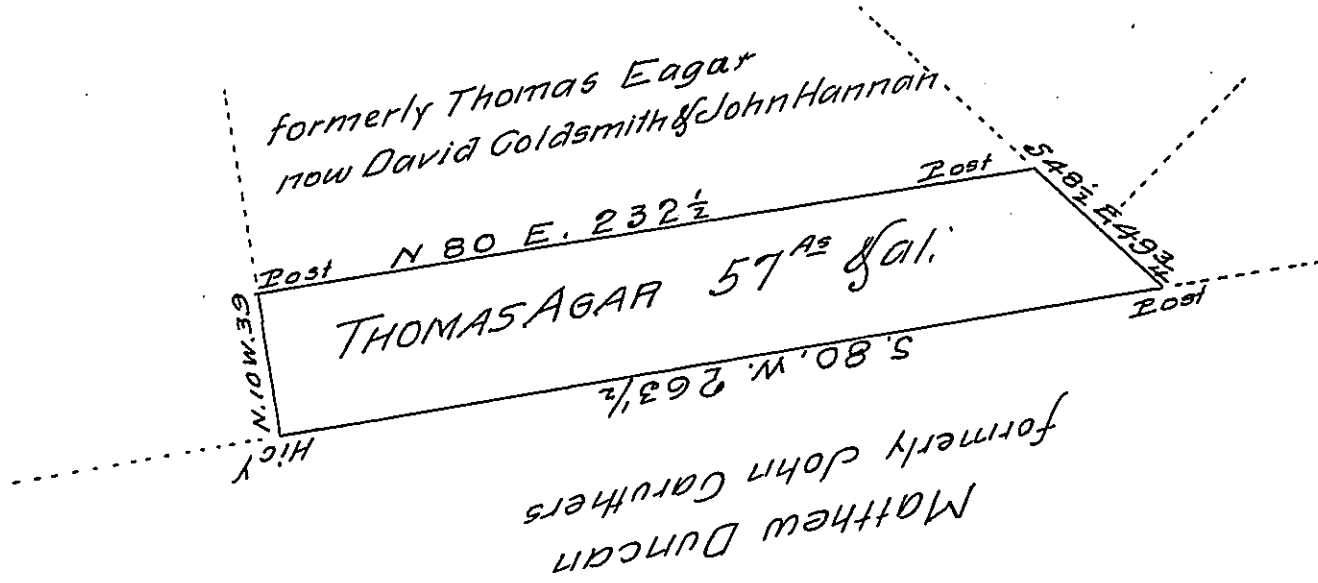 formerly Thomas Eagar
now David Goldsmith & John Hannan
Post
N 80 E. 232½
Post
S 48½ E 49¾
Post
THOMAS AGAR 57 As & al.
N. 10 W. 39
Hicy
S. 80. W. 263½
Matthew Duncan
formerly John Caruthers